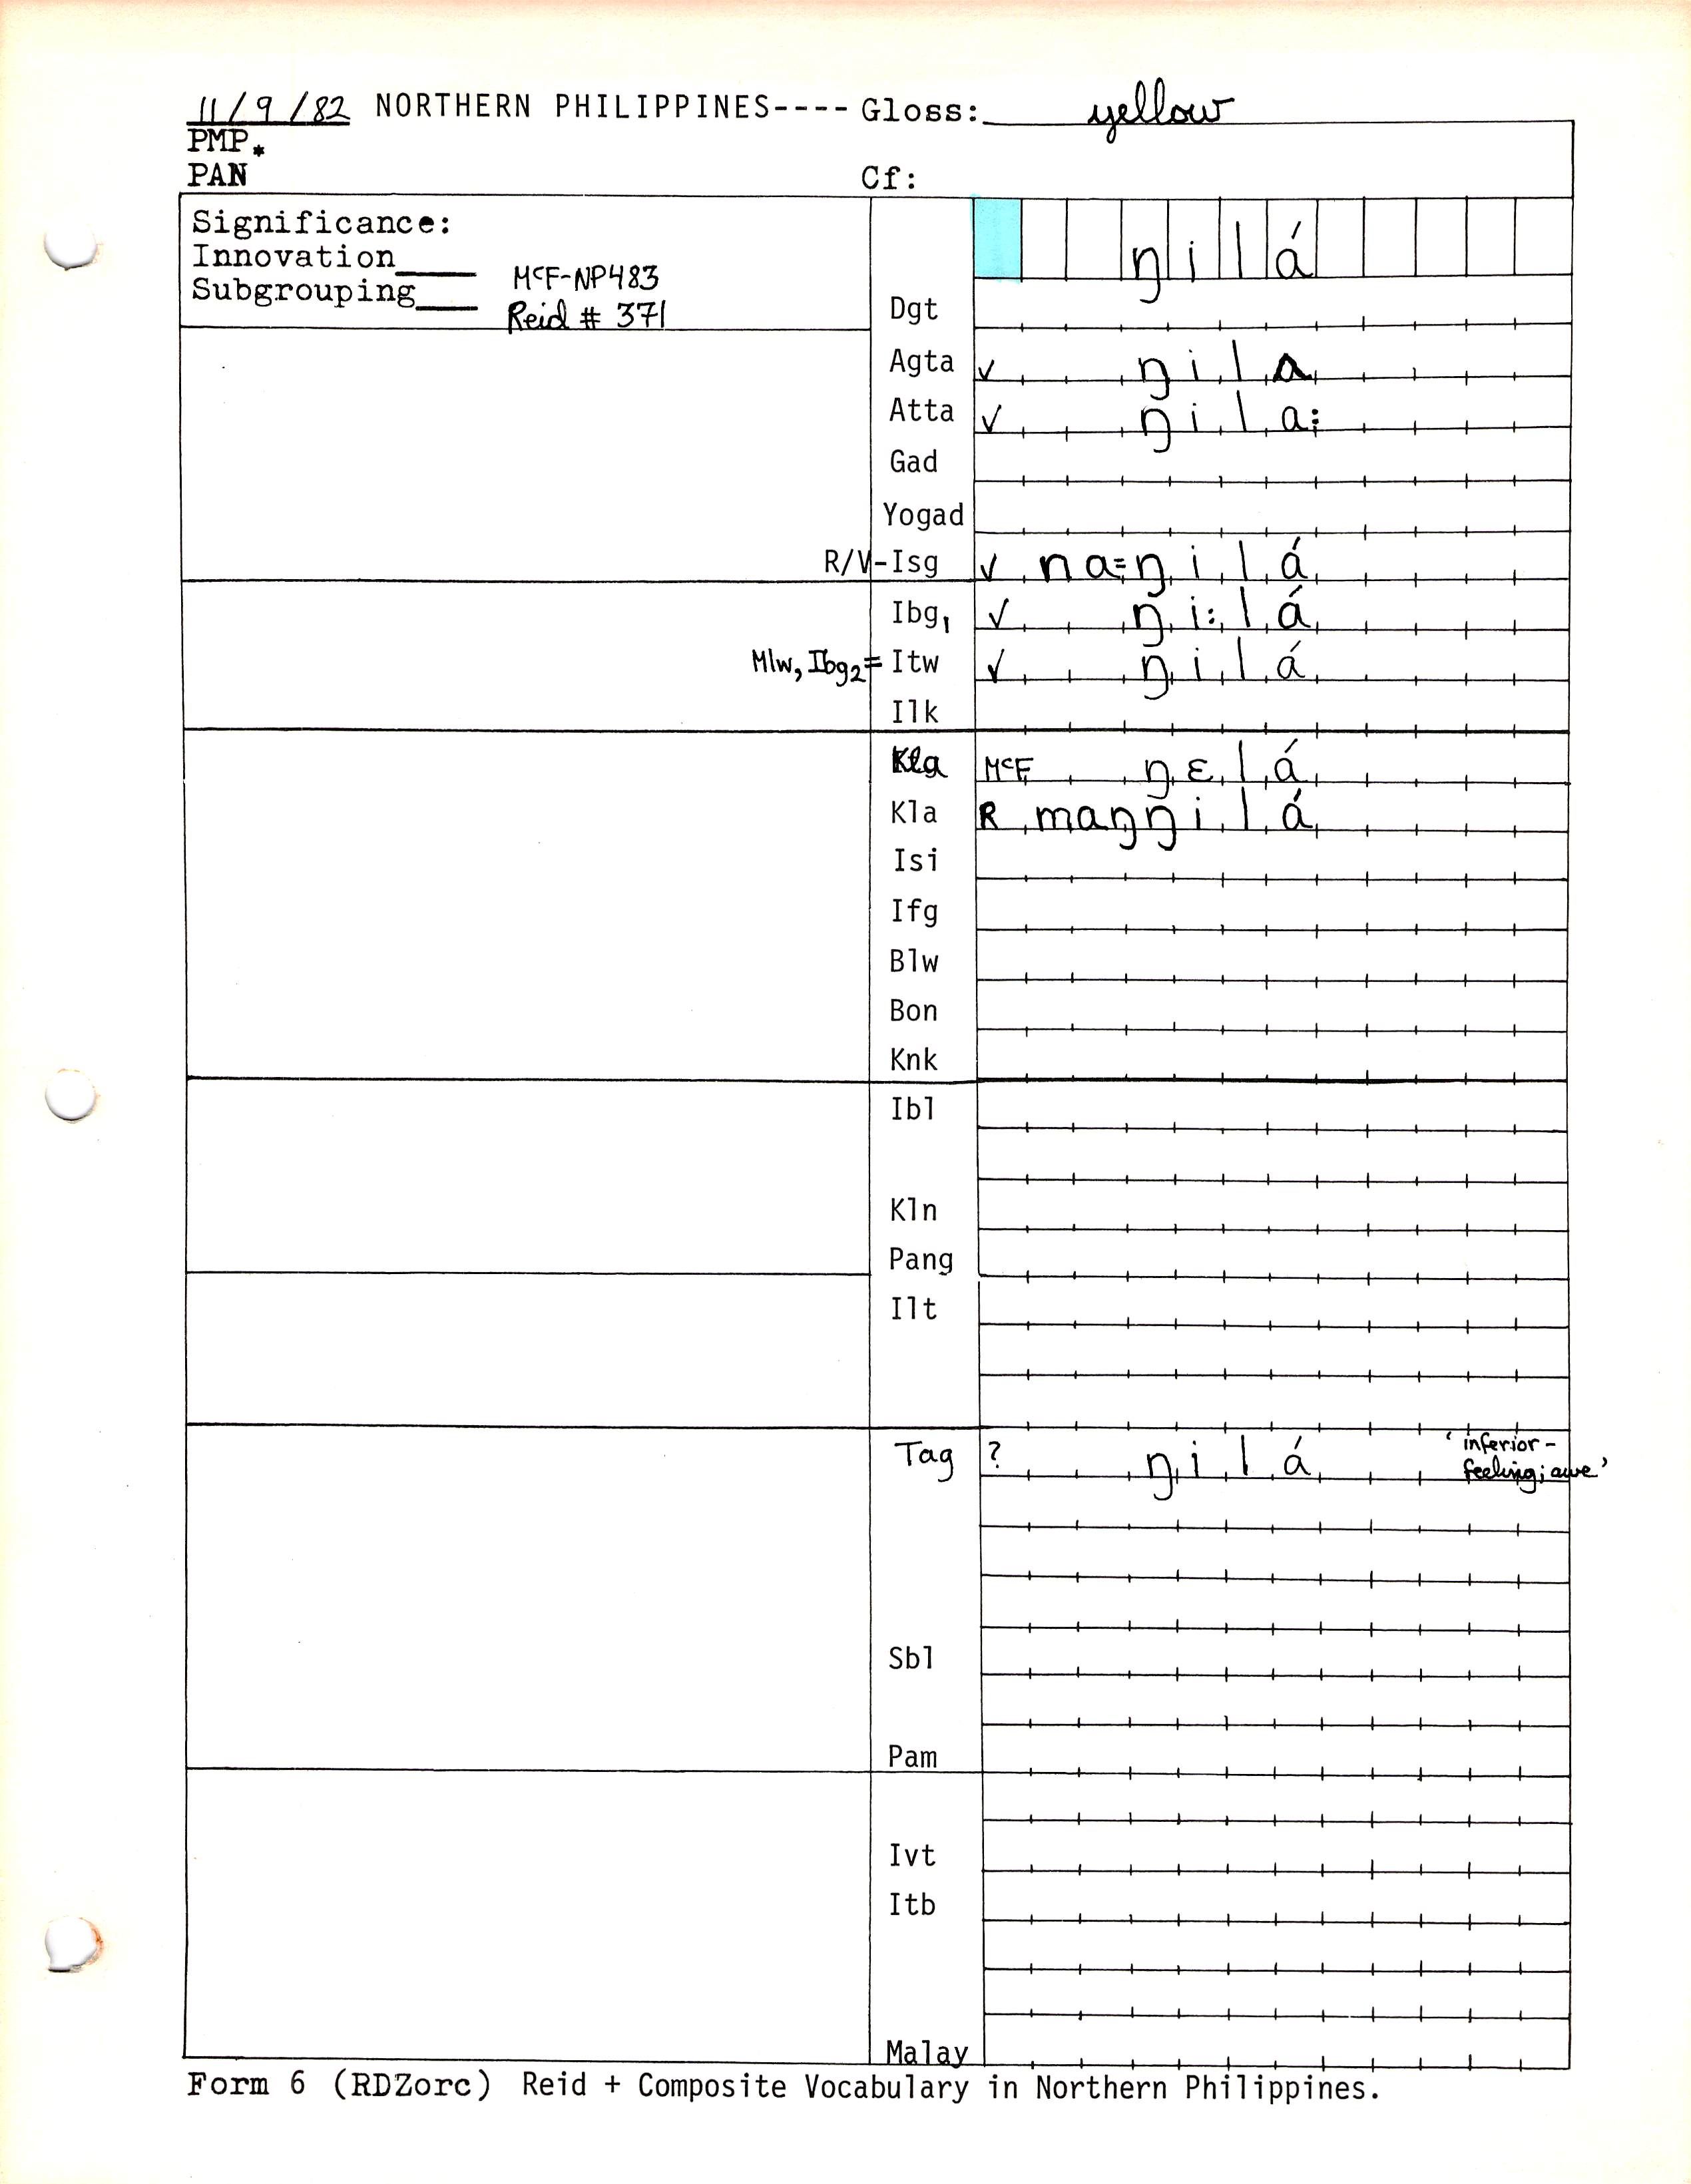 11/9/82 NORTHERN PHILIPPINES---- Gloss: yellow
PMP*
PAN Cf:
Significance:
Innovation____
Subgrouping____
McF-NP483
Reid # 371
ŋilá
Dgt
Agta ✓ ŋila
Atta ✓ ŋila:
Gad
Yogad
R/V-Isg ✓ na=ŋilá
Ibg1 ✓ ŋi:lá
Mlw, Ibg2 = Itw ✓ ŋilá
Ilk
Kla McF ŋɛlá
Kla R maŋŋilá
Isi
Ifg
Blw
Bon
Knk
Ibl
Kln
Pang
Ilt
Tag ? ŋilá ‘inferior-
feeling; awe’
Sbl
Pam
Ivt
Itb
Malay
Form 6 (RDZorc) Reid + Composite Vocabulary in Northern Philippines.